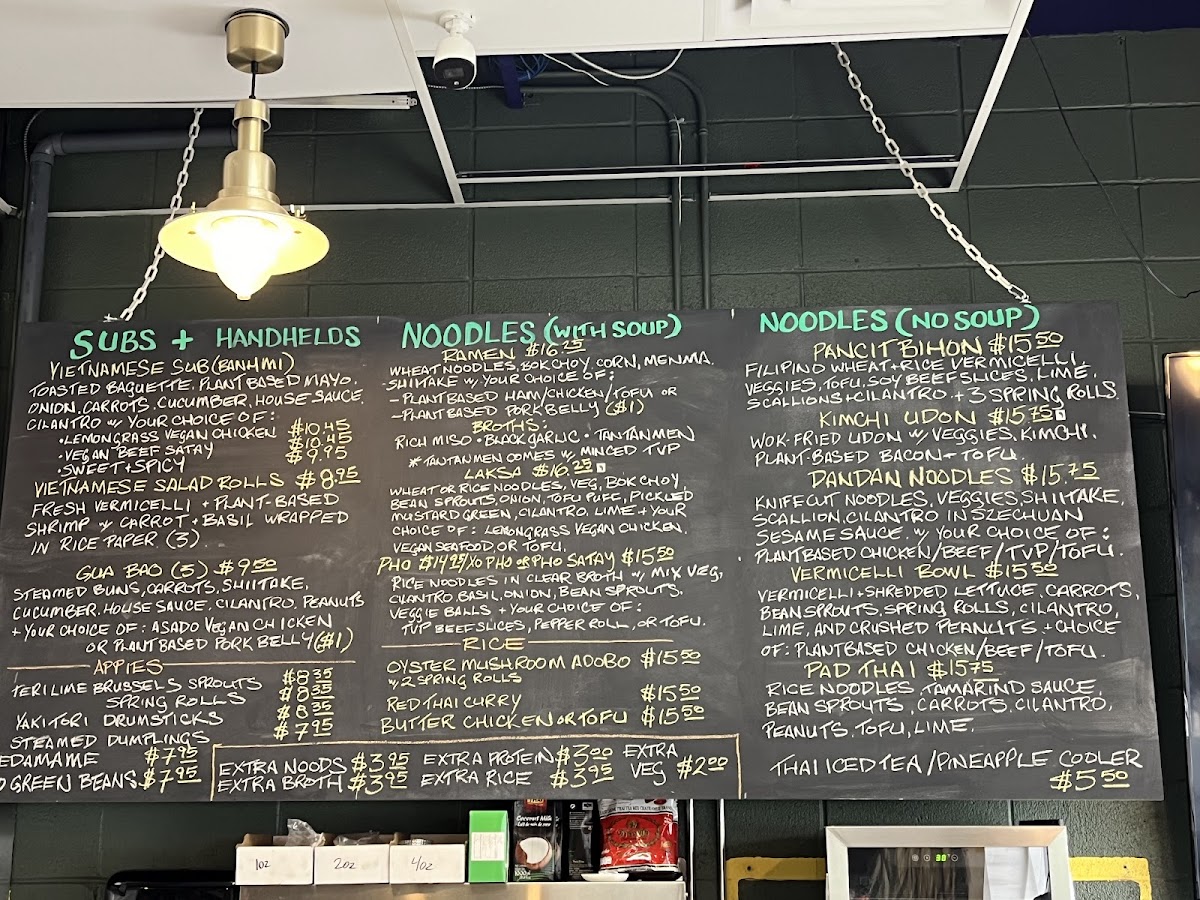 SUBS + HANDHELDS
VIETNAMESE SUB (BANHMI)
TOASTED BAGUETTE, PLANT BASED MAYO,
ONION, CARROTS, CUCUMBER, HOUSE SAUCE,
CILANTRO w/ YOUR CHOICE OF:
• LEMONGRASS VEGAN CHICKEN $10.45
• VEGAN BEEF SATAY $10.45
• SWEET + SPICY $9.95
VIETNAMESE SALAD ROLLS $8.95
FRESH VERMICELLI + PLANT-BASED
SHRIMP w/ CARROT + BASIL WRAPPED
IN RICE PAPER (3)
GUA BAO (3) $9.50
STEAMED BUNS, CARROTS, SHIITAKE,
CUCUMBER, HOUSE SAUCE, CILANTRO, PEANUTS
+ YOUR CHOICE OF: ASADO VEGAN CHICKEN
OR PLANT BASED PORK BELLY ($1)
APPIES
TERI LIME BRUSSELS SPROUTS $8.35
SPRING ROLLS $8.35
YAKITORI DRUMSTICKS $8.35
STEAMED DUMPLINGS $7.95
EDAMAME $7.95
GREEN BEANS $7.95
NOODLES (WITH SOUP)
RAMEN $16.25
WHEAT NOODLES, BOK CHOY, CORN, MENMA,
SHIITAKE w/ YOUR CHOICE OF:
- PLANT BASED HAM/CHICKEN/TOFU OR
- PLANT BASED PORK BELLY ($1)
BROTHS:
RICH MISO • BLACK GARLIC • TANTANMEN
* TANTANMEN COMES w/ MINCED TVP
LAKSA $16.25
WHEAT OR RICE NOODLES, VEG, BOK CHOY,
BEAN SPROUTS, ONION, TOFU PUFF, PICKLED
MUSTARD GREEN, CILANTRO, LIME + YOUR
CHOICE OF: LEMONGRASS VEGAN CHICKEN,
VEGAN SEAFOOD, OR TOFU.
PHO $14.95/XO PHO OR PHO SATAY $15.50
RICE NOODLES IN CLEAR BROTH w/ MIX VEG,
CILANTRO, BASIL, ONION, BEAN SPROUTS,
VEGGIE BALLS + YOUR CHOICE OF:
TVP BEEF SLICES, PEPPER ROLL, OR TOFU.
RICE
OYSTER MUSHROOM ADOBO $15.50
w/ 2 SPRING ROLLS
RED THAI CURRY $15.50
BUTTER CHICKEN OR TOFU $15.50
EXTRA NOODS $3.95 EXTRA PROTEIN $3.00 EXTRA
EXTRA BROTH $3.95 EXTRA RICE $3.95 VEG $2.00
NOODLES (NO SOUP)
PANCIT BIHON $15.50
FILIPINO WHEAT + RICE VERMICELLI,
VEGGIES, TOFU, SOY BEEF SLICES, LIME,
SCALLIONS + CILANTRO + 3 SPRING ROLLS
KIMCHI UDON $15.75
WOK-FRIED UDON w/ VEGGIES, KIMCHI,
PLANT-BASED BACON + TOFU.
DANDAN NOODLES $15.75
KNIFE CUT NOODLES, VEGGIES, SHIITAKE,
SCALLION, CILANTRO IN SZECHUAN
SESAME SAUCE. w/ YOUR CHOICE OF:
PLANTBASED CHICKEN/BEEF/TVP/TOFU.
VERMICELLI BOWL $15.50
VERMICELLI + SHREDDED LETTUCE, CARROTS,
BEAN SPROUTS, SPRING ROLLS, CILANTRO,
LIME, AND CRUSHED PEANUTS. + CHOICE
OF: PLANTBASED CHICKEN/BEEF/TOFU.
PAD THAI $15.75
RICE NOODLES, TAMARIND SAUCE,
BEAN SPROUTS, CARROTS, CILANTRO,
PEANUTS, TOFU, LIME.
THAI ICED TEA/PINEAPPLE COOLER
$5.50
1oz
2oz
4oz
Coconut Milk
30